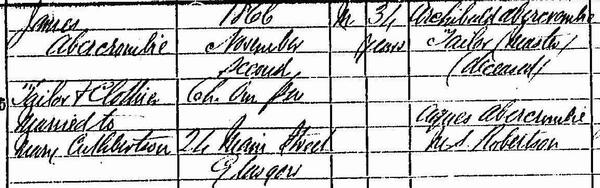 James
Abercrombie
Tailor & Clothier
Married to
Mary Cuthbertson
1866
November
second
6h. 0m. pm
24 Main Street
Glasgow
M
34
years
Archibald Abercrombie
Tailor (Master)
(deceased)
Agnes Abercrombie
M.S. Robertson